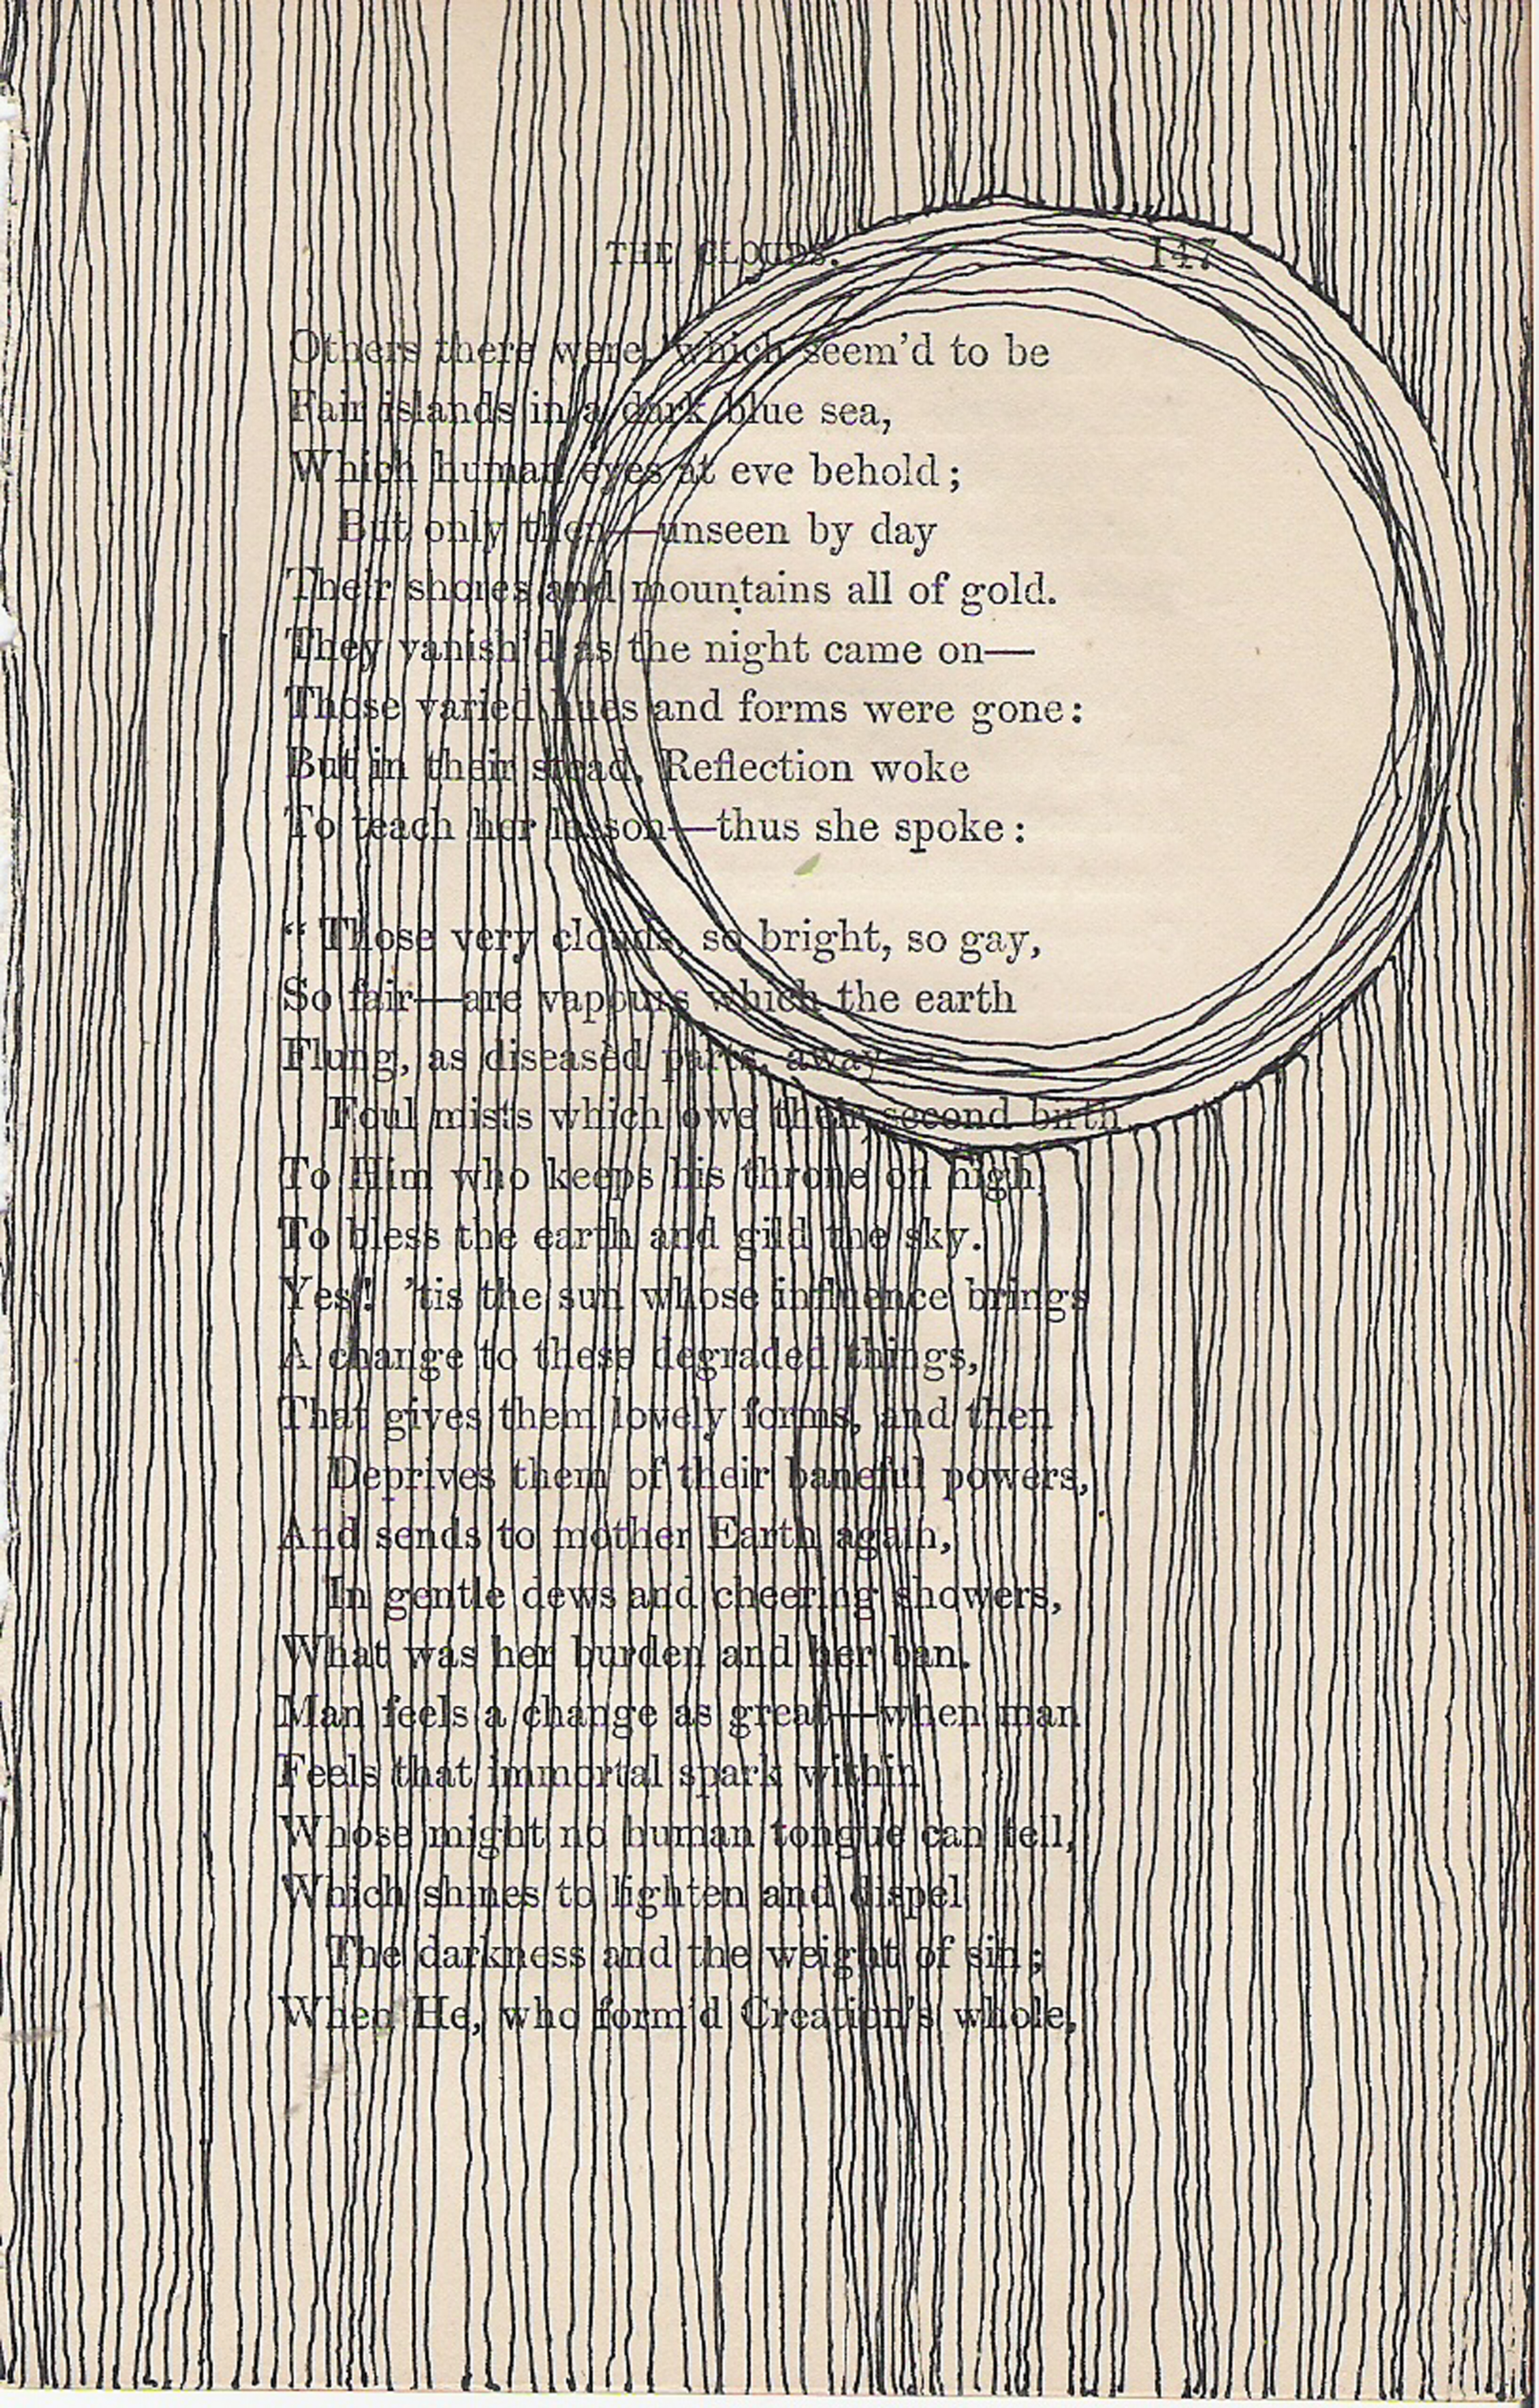 THE CLOUDS. 147
Others there were, which seem'd to be
Fair islands in a dark blue sea,
Which human eyes at eve behold;
But only then—unseen by day
Their shores and mountains all of gold.
They vanish'd as the night came on—
Those varied hues and forms were gone:
But in their stead, Reflection woke
To teach her lesson—thus she spoke:
“Those very clouds, so bright, so gay,
So fair—are vapours which the earth
Flung, as diseased parts, away—
Foul mists which owe their second birth
To Him who keeps his throne on high,
To bless the earth and gild the sky.
Yes! 'tis the sun whose influence brings
A change to these degraded things,
That gives them lovely forms, and then
Deprives them of their baneful powers,
And sends to mother Earth again,
In gentle dews and cheering showers,
What was her burden and her ban.
Man feels a change as great—when man
Feels that immortal spark within
Whose might no human tongue can tell,
Which shines to lighten and dispel
The darkness and the weight of sin;
When He, who form'd Creation's whole,